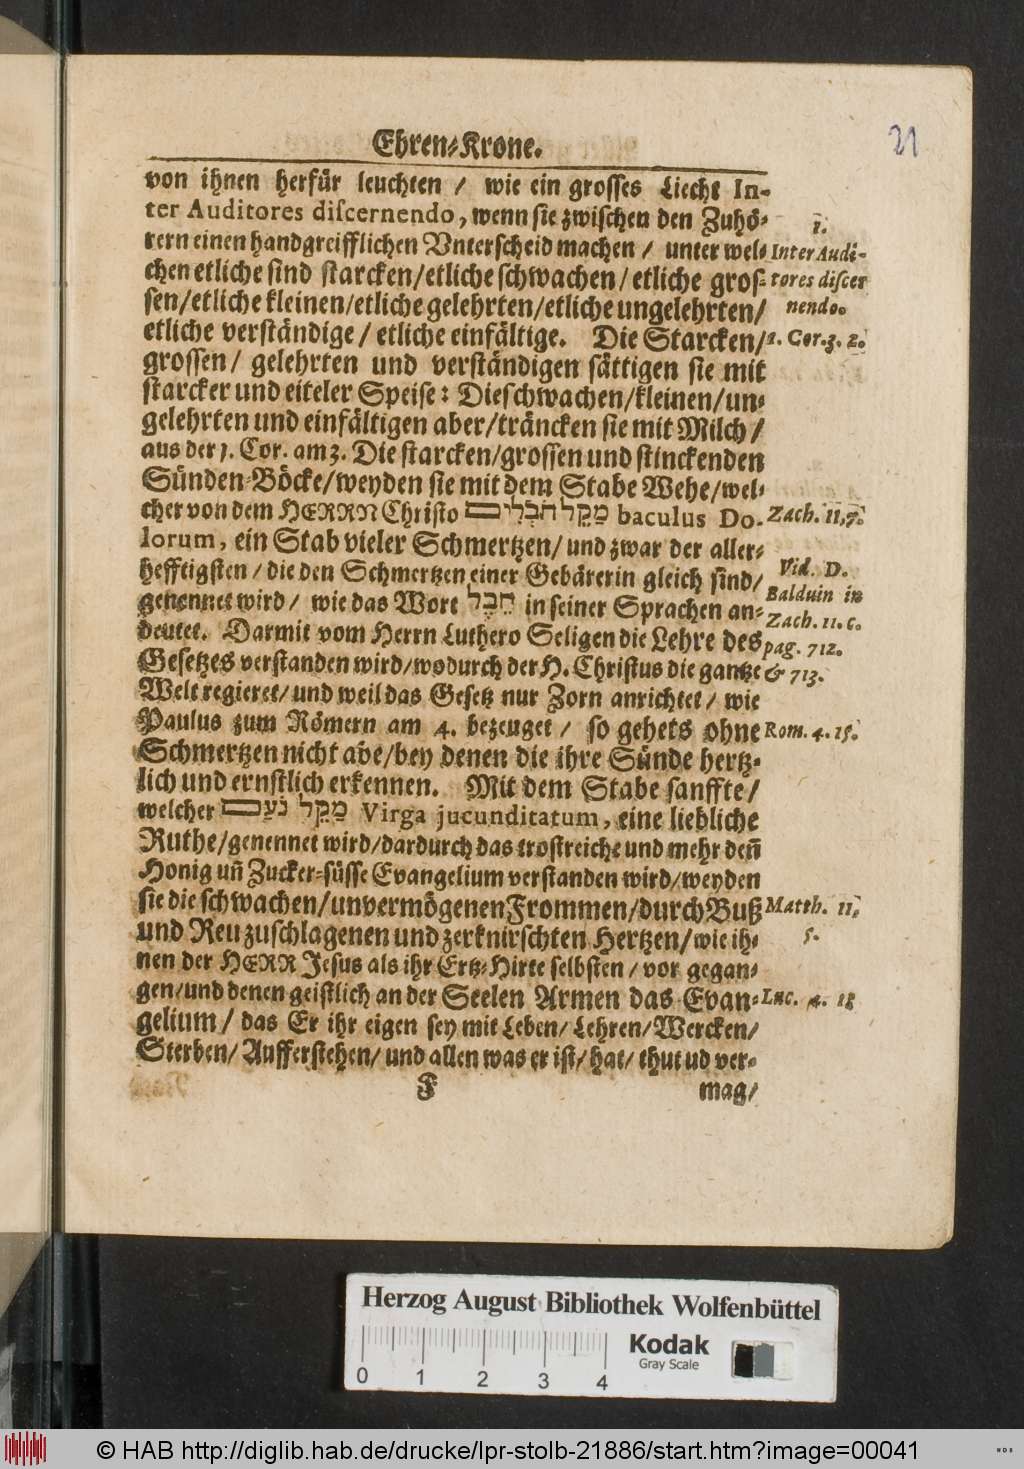 21
Ehren-Krone.
von ihnen herfür leuchten / wie ein grosses Liecht In-
ter Auditores discernendo, wenn sie zwischen den Zuhö-
rern einen handgreifflichen Vnterscheid machen / unter wel-
chen etliche sind starcken/etliche schwachen/etliche gros-
sen/etliche kleinen/etliche gelehrten/etliche ungelehrten/
etliche verständige / etliche einfältige. Die Starcken/
grossen / gelehrten und verständigen sättigen sie mit
starcker und eiteler Speise: Die schwachen/kleinen/un-
gelehrten und einfältigen aber/träncken sie mit Milch /
aus der 1. Cor. am 3. Die starcken/grossen und stinckenden
Sünden-Böcke/weyden sie mit dem Stabe Wehe/wel-
cher von dem HERRN Christo מַקֵּל חֹבְלִים baculus Do-
lorum, ein Stab vieler Schmertzen/ und zwar der aller-
hefftigsten / die den Schmertzen einer Gebärerin gleich sind/
genennet wird / wie das Wort חֵבֶל in seiner Sprachen an-
deutet. Darmit vom Herrn Luthero Seligen die Lehre des
Gesetzes verstanden wird/wodurch der H. Christus die gantze
Welt regieret/ und weil das Gesetz nur Zorn anrichtet / wie
Paulus zum Römern am 4. bezeuget / so gehets ohne
Schmertzen nicht abe/bey denen die ihre Sünde hertz-
lich und ernstlich erkennen. Mit dem Stabe sanffte /
welcher מַקֵּל נֹעַם Virga jucunditatum, eine liebliche
Ruthe/genennet wird/dardurch das trostreiche und mehr deñ
Honig uñ Zucker-süsse Evangelium verstanden wird/weyden
sie die schwachen/unvermögenen Frommen/durch Buß
und Reu zuschlagenen und zerknirschten Hertzen/wie ih-
nen der HERR Jesus als ihr Ertz-Hirte selbsten / vor gegan-
gen/und denen geistlich an der Seelen Armen das Evan-
gelium / das Er ihr eigen sey mit Leben/ Lehren/Wercken/
Sterben/ Aufferstehen/ und allen was er ist/ hat/ thut ud ver-
F mag/
1.
Inter Audi-
tores discer
nendo.
1. Cor. 3. 2.
Zach. 11, 7.
Vid. D.
Balduin in
Zach. 11. c.
pag. 712.
& 713.
Rom. 4. 15.
Matth. 11,
5.
Luc. 4. 18
Herzog August Bibliothek Wolfenbüttel
0 1 2 3 4
Kodak
Gray Scale
© HAB http://diglib.hab.de/drucke/lpr-stolb-21886/start.htm?image=00041